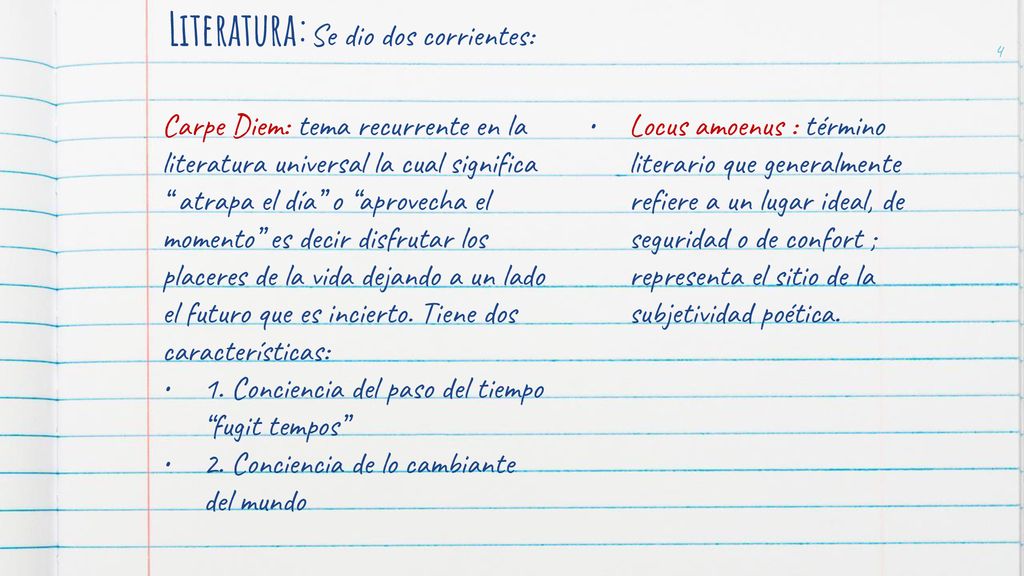 LITERATURA: Se dio dos corrientes:
4
Carpe Diem: tema recurrente en la
literatura universal la cual significa
“ atrapa el día” o “aprovecha el
momento” es decir disfrutar los
placeres de la vida dejando a un lado
el futuro que es incierto. Tiene dos
características:
• 1. Conciencia del paso del tiempo
“fugit tempos”
• 2. Conciencia de lo cambiante
del mundo
• Locus amoenus : término
literario que generalmente
refiere a un lugar ideal, de
seguridad o de confort ;
representa el sitio de la
subjetividad poética.